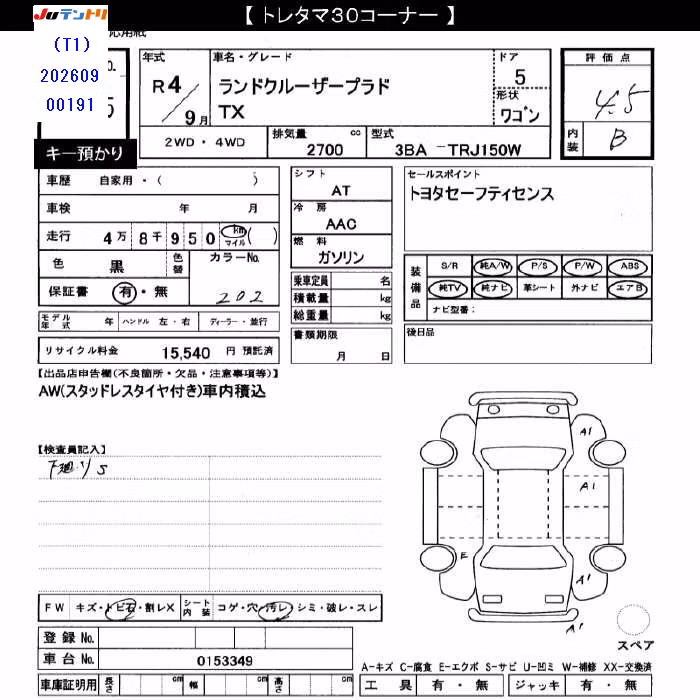 【 トレタマ30コーナー 】
JUテントリ
応用紙
(T1)
202609
00191
o.
5
キー預かり
年式 R4/9月
車名・グレード
ランドクルーザープラド
TX
ドア 5
形状 ワゴン
評価点 4.5
内装 B
2WD・4WD
排気量 cc 2700
型式 3BA -TRJ150W
車歴 自家用・( )
車検 年 月
走行 4万 8千 950 km マイル ( )
色 黒 色替 カラーNo. 202
保証書 有・無
モデル年式 年 ハンドル 左・右 ディーラー・並行
リサイクル料金 15,540 円 預託済
シフト AT
冷房 AAC
燃料 ガソリン
乗車定員 名
積載量 kg
総重量 kg
書類期限 月 日
セールスポイント
トヨタセーフティセンス
装備品
S/R 純A/W P/S P/W ABS
純TV 純ナビ 革シート 外ナビ エアB
ナビ型番:
後日品
【出品店申告欄(不良箇所・欠品・注意事項等)】
AW(スタッドレスタイヤ付き)車内積込
【検査員記入】
下廻り S
A1
A1
E
A1
A1
FW キズ・トビ石・割レX シート内装 コゲ・穴・汚レ・シミ・破レ・スレ
登録 No.
車台 No. 0153349
車庫証明用 長さ cm 幅 cm 高さ cm
スペア
A-キズ C-腐食 E-エクボ S-サビ U-凹ミ W-補修 XX-交換済
工具 有・無 ジャッキ 有・無